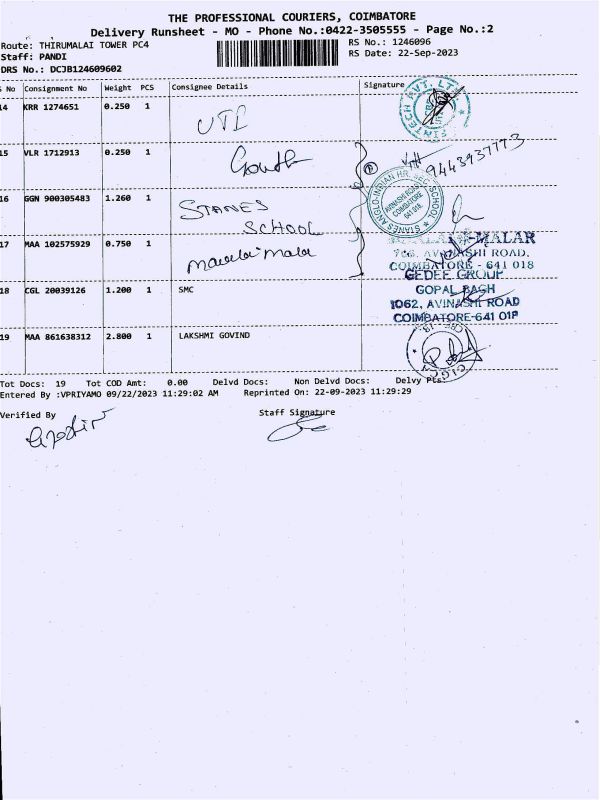 THE PROFESSIONAL COURIERS, COIMBATORE
Delivery Runsheet - MO - Phone No.:0422-3505555 - Page No.:2
Route: THIRUMALAI TOWER PC4 RS No.: 1246096
Staff: PANDI RS Date: 22-Sep-2023
DRS No.: DCJB124609602
S No Consignment No Weight PCS Consignee Details Signature
14 KRR 1274651 0.250 1 UTI
FINTECH PVT. LTD
15 VLR 1712913 0.250 1 Gowtham 9443937773
16 GGN 900305483 1.260 1 STANES SCHOOL
STANES ANGLO-INDIAN HR. SEC. SCHOOL
AVINASHI ROAD
COIMBATORE
641 018
17 MAA 102575929 0.750 1
MALAR
AVINASHI ROAD,
COIMBATORE - 641 018
GEDEE GROUP
18 CGL 20039126 1.200 1 SMC
GOPAL BAGH
1062, AVINASHI ROAD
COIMBATORE-641 018
19 MAA 861638312 2.800 1 LAKSHMI GOVIND
Tot Docs: 19 Tot COD Amt: 0.00 Delvd Docs: Non Delvd Docs: Delvy Pts:
Entered By :VPRIYAMO 09/22/2023 11:29:02 AM Reprinted On: 22-09-2023 11:29:29
Verified By Staff Signature